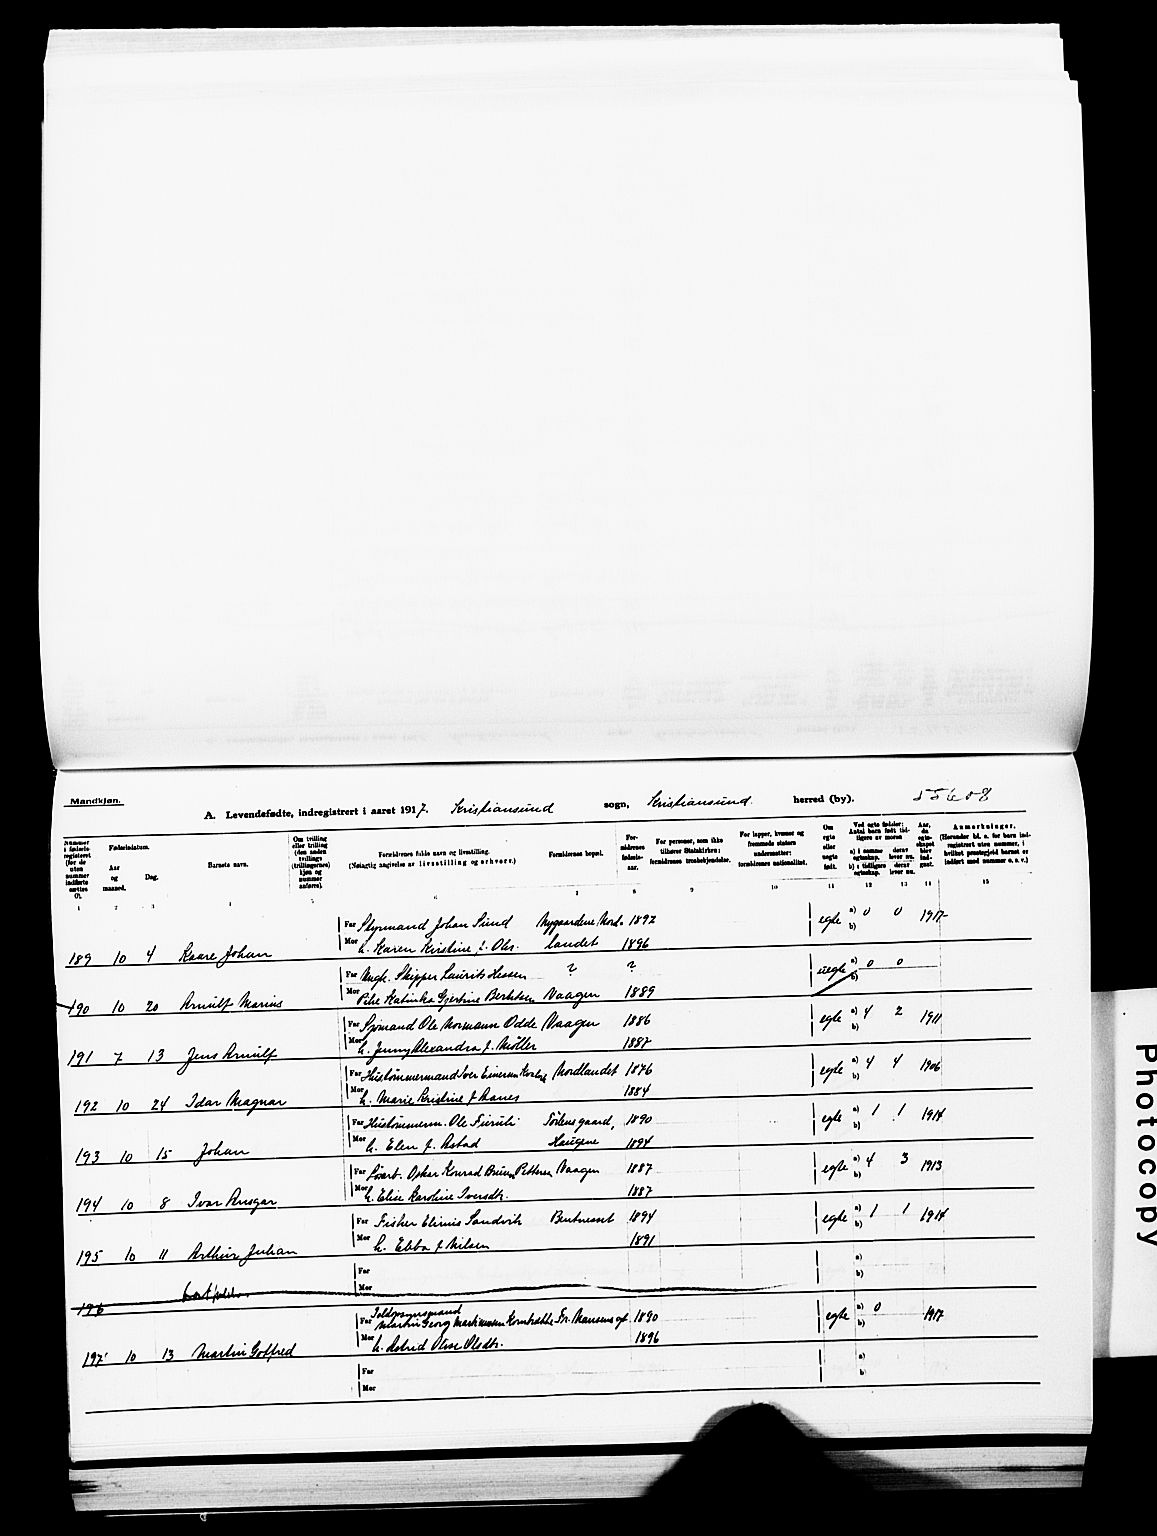 Mandkjøn.
A. Levendefødte, indregistrert i aaret 1917. Kristiansund sogn, Kristiansund. herred (by). 55608
Nummer i fødselsregisteret (for de uten nummer indførte sættes 0).
Fødselsdatum.
Aar og maaned.
Dag.
Barnets navn.
Om tvilling eller trilling (den anden tvillings (trillingernes) kjøn og nummer anføres).
Forældrenes fulde navn og livsstilling.
(Nøiagtig angivelse av livsstilling og erhverv.)
Forældrenes bopæl.
Forældrenes fødselsaar.
For personer, som ikke tilhører Statskirken: forældrenes trosbekjendelse.
For lapper, kvæner og fremmede staters undersaatter: forældrenes nationalitet.
Om egte eller uegte født.
Ved egte fødsler: Antal barn født tidligere av moren
a) i samme egteskap. derav lever nu.
b) i tidligere egteskap. derav lever nu.
Aar, da egteskapet blev indgaat.
Anmerkninger.
(Herunder bl. a. for barn indregistrert uten nummer, i hvilket prestegjeld barnet er indført med nummer o. s. v.)
1 2 3 4 5 6 7 8 9 10 11 12 13 14 15
Far Styrmand Johan Sund Nygaardene Nord- 1892 egte a) 0 0 1917
189 10 4 Kaare Johan Mor h. Karen Kristine f. Ols. landet 1896 b)
Far Ungk. Skipper Laurits Hessen ? ? uegte a) 0 0
190 10 20 Arnulf Marius Mor Pike Katinka Gjertine Berntsen Vaagen 1889 b)
Far Sjømand Ole Normann Odde Vaagen 1886 egte a) 4 2 1911
191 7 13 Jens Arnulf Mor h. Jenny Alexandra f. Møller 1887 b)
Far Hustømmermand Iver Nordlandet 1876 egte a) 4 4 1906
192 10 24 Idar Magnar Mor h. Marie Kristine f. 1884 b)
Far Hustømmerm. Ole 1890 egte a) 1 1 1914
193 10 15 Johan Mor h. Elen f. Haugene 1894 b)
Far Oskar Konrad Pettersen Vaagen 1887 egte a) 4 3 1913
194 10 8 Ivar Ansgar Mor h. Elise Karoline Iversdtr. 1887 b)
Far Fisker Sandvik 1894 egte a) 1 1 1914
195 10 11 Arthur Julian Mor h. Ebba f. Nilsen 1891 b)
Far a)
196 Mor b)
Far Martin Georg 1890 egte a) 0 1917
197 10 13 Martin Gotfred Mor h. Astrid Olsdtr. 1896 b)
Far a)
Mor b)
Photocopy